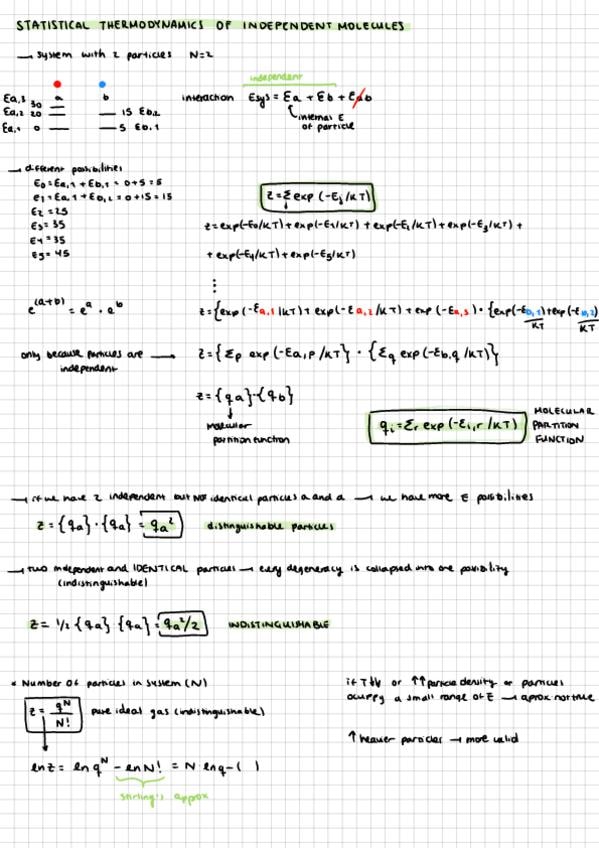 STATISTICAL THERMODYNAMICS OF INDEPENDENT MOLECULES
→ system with 2 particles N=2
independent
interaction Esys = Ea + Eb + Eab
internal E
of particle
a b
Ea,3 30
Ea,2 20 15 Eb,2
Ea,1 0 5 Eb,1
→ different possibilities
E0 = Ea,1 + Eb,1 = 0+5 = 5
e1 = Ea,1 + Eb,2 = 0+15 = 15
E2 = 25
E3 = 35
E4 = 35
E5 = 45
z = Σj exp (-Ej/KT)
z = exp(-E0/KT) + exp(-E1/KT) + exp(-E2/KT) + exp(-E3/KT) +
+ exp(-E4/KT) + exp(-E5/KT)
⋮
e^(a+b) = e^a · e^b
z = {exp(-Ea,1/KT) + exp(-Ea,2/KT) + exp(-Ea,3) · {exp(-Eb,1)/KT + exp(-Eb,2)/KT
only because particles are → z = {Σp exp(-Ea,p/KT} · {Σq exp(-Eb,q/KT)}
independent
z = {qa}·{qb}
molecular
partition function
qi = Σr exp(-Ei,r/KT) MOLECULAR
PARTITION
FUNCTION
→ if we have 2 independent but NOT identical particles a and a → we have more E possibilities
z = {qa}·{qa} = qa² distinguishable particles
→ two independent and IDENTICAL particles → every degeneracy is collapsed into one possibility
(indistinguishable)
z = 1/2 {qa} {qa} = qa²/2 INDISTINGUISHABLE
* Number of particles in system (N)
z = q^N/N! pure ideal gas (indistinguishable)
ln z = ln q^N - ln N! = N·ln q - ( )
stirling's approx
if T↓↓ or ↑↑ particle density or particles
occupy a small range of E → aprox not true
↑ heavier particles → more valid